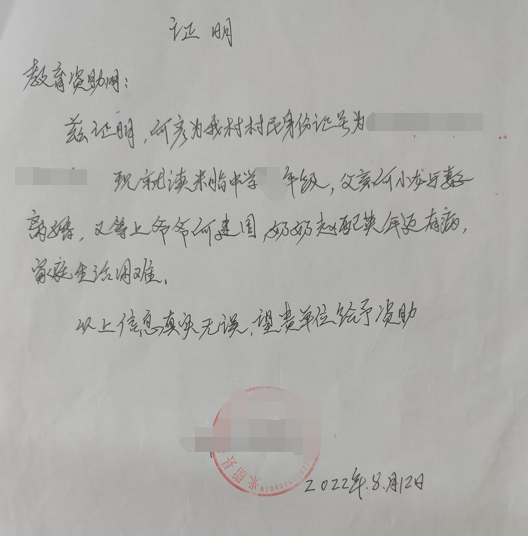 证明
教育资助网：
兹证明，何彦为我村村民身份证号为
现就读米脂中学 年级，父亲何小龙与妻
离婚，又等上爷爷何建国，奶奶赵配英年迈有病，
家庭生活困难。
以上信息真实无误，望贵单位给予资助
米脂县
2022年.8.月12日